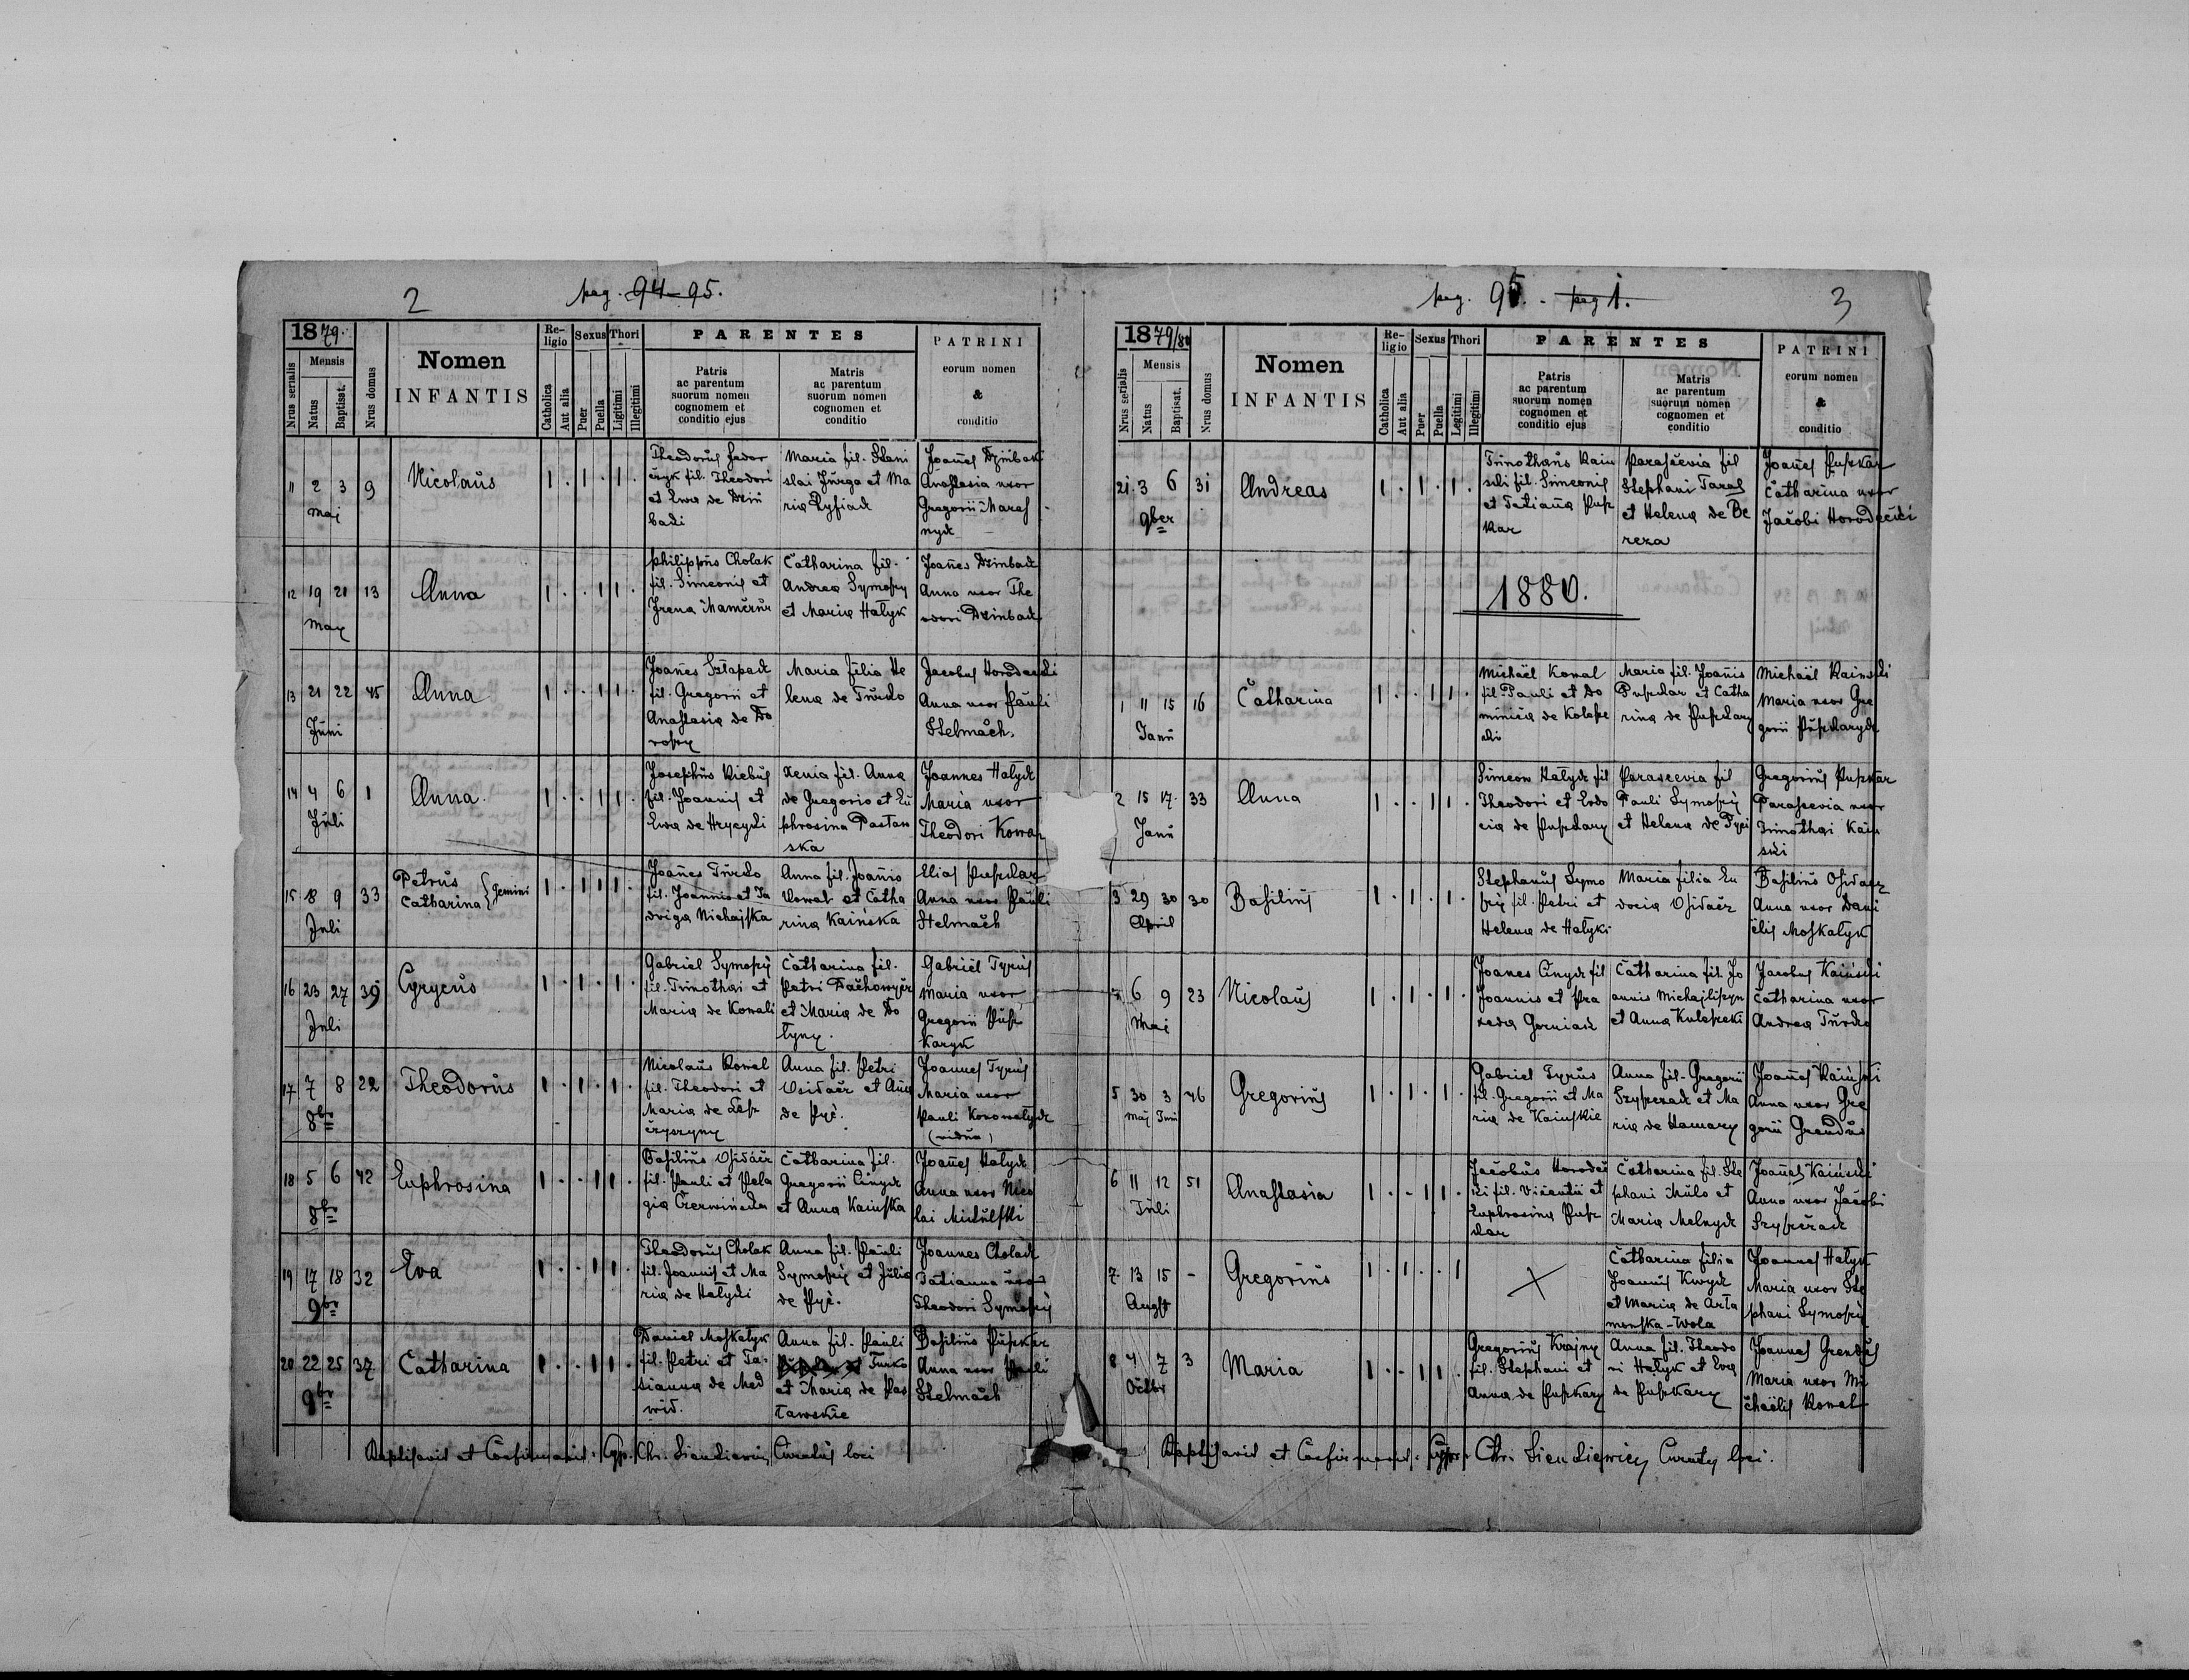 2
pag. 94-95.
1879.
Nrus serialis
Mensis
Natus
Baptisat.
Nrus domus
Nomen
INFANTIS
Re-
ligio
Catholica
Aut alia
Sexus
Puer
Puella
Thori
Ligitimi
Illegitimi
PARENTES
Patris
ac parentum
suorum nomen
cognomem et
conditio ejus
Matris
ac parentum
suorum nomen
cognomen et
conditio
PATRINI
eorum nomen
&
conditio
11 2 3 9
Maj
Nicolaus
1 . 1 . 1 .
Theodorus
fil. Theodori
et Eva de
Maria fil. Stani
slai Jurga et Ma
ria
Joañes Dzinbak
Anastasia uxor
Gregorii
12 19 21 13
May
Anna
1 . . 1 1 .
Philippus Cholak
fil. Simeonis et
Irena
Catharina fil.
Andrea Symofzy
et Maria Hałyk
Joañes Dzinbak
Anna uxor The
odori Dzinbak
13 21 22 45
Juni
Anna
1 . . 1 1 .
Joañes Szłapak
fil. Gregorii et
Anastasia de
Maria filia He
lena de Turko
Jacobus Horodecki
Anna uxor Pauli
Stelmach.
14 4 6 1
Juli
Anna.
1 . . 1 1 .
Josephus
fil. Joannis et
Eva de Hrycyki
Xenia fil. Anna
de Gregorio et Eu
phrosina
ska
Joannes Halyk
Maria uxor
Theodori Kowal
15. 8 9 33
Juli
Petrus
Catharina } Gemini
1 . 1 1 1 .
Joañes Turko
fil. Joannis et Ja
dviga Michajska
Anna fil. Joannis
Kowal et Catha
rina Kaińska
Elias Puszkar
Anna uxor Pauli
Stelmach
16 23 27 39
Juli
Cyrycus
1 . 1 . 1 .
Gabriel Symofzy
fil. Timothei et
Maria de Kowali
Catharina fil.
Petri
et Maria de Do
łyny.
Gabriel Tyrus
Maria uxor
Gregorii Pusz
karyk
17 7 8 22
8br
Theodorus
1 . 1 . 1 .
Nicolaus Kowal
fil. Theodori et
Maria de
Anna fil. Petri
Osidacz et Anna
de Pyc.
Joannes Tyrus
Maria uxor
Pauli Konowałyk
(vidua)
18 5 6 42
8br
Euphrosina
1 . . 1 1 .
Basilius Osidacz
fil. Pauli et Pela
gia Czerwińska
Catharina fil.
Gregorii Cinyk
et Anna Kainska
Joañes Halyk
Anna uxor Nico
lai Mikulski
19 17 18 32
9br
Eva
1 . . 1 1 .
Theodorus Cholak
fil. Joannis et Ma
ria de Hałyki
Anna fil. Pauli
Symofzy et Julia
de Pyc.
Joannes Cholak
Tatianna uxor
Theodori Symofzy
20 22 25 37
9br
Catharina
1 . . 1 1 .
Daniel Moskałyk
fil. Petri et Ta
tianna de Med
wid.
Anna fil. Pauli
Turko
et Maria de Pas
ławskie
Basilius Puszkar
Anna uxor Pauli
Stelmach
Baptisavit et Confirmavit Cyp. Chr. Sienkiewicz Curatus loci
pag. 95. pag 1.
3
1879/80
Nrus serialis
Mensis
Natus
Baptisat.
Nrus domus
Nomen
INFANTIS
Re-
ligio
Catholica
Aut alia
Sexus
Puer
Puella
Thori
Legitimi
Illegitimi
PARENTES
Patris
ac parentum
suorum nomen
cognomen et
conditio ejus
Matris
ac parentum
suorum nomen
cognomen et
conditio
PATRINI
eorum nomen
&
conditio
21. 3 6 31
9ber
Andreas
1 . 1 . 1 .
Timotheus Kain
ski fil. Simeonis
et Tatiana Pusz
kar
Parascevia fil
Stephani Taras
et Helena de Be
reza
Joañes Puszkar
Catharina uxor
Jacobi Horodecki
1880.
1 11 15 16
Janu
Catharina
1 . . 1 1 .
Michael Kowal
fil. Pauli et Do
minica de
Maria fil. Joannis
Puszkar et Catha
rina de Puszkary
Michael Kainski
Maria uxor Gre
gorii Puszkaryk
2 15 17. 33
Janu
Anna
1 . . 1 1 .
Simeon Hałyk fil
Theodori et Evdo
cia de Puszkary
Parascevia fil
Pauli Symofzy
et Helena de Pyci
Gregorius Puszkar
Parascevia uxor
Timothei Kain
ski
3 29 30 30
April
Basilius
1 . 1 . 1 .
Stephanus Symo
fzy fil. Petri et
Helena de Hałyki
Maria filia Eu
docia Osidacz
Basilius Osidacz
Anna uxor Dani
elis Moskałyk
6 9 23
Mai
Nicolaus
1 . 1 . 1 .
Joanes Cinyk fil
Joannis et Pra
xeda Gorniak
Catharina fil. Jo
annis Michajliszyn
et Anna
Jacobus Kainski
Catharina uxor
Andrea Turko
5 30 3 46
Maj Juni
Gregorius
1 . 1 . 1 .
Gabriel Tyrus
fil. Gregorii et Ma
ria de Kainskie
Anna fil. Gregorii
Szyperak et Ma
ria de Hamary
Joañes Kainski
Anna uxor Gre
gorii Grendus
6 11 12 51
Juli
Anastasia
1 . . 1 1 .
Jacobus Horodec
ki fil. Vicentii et
Euphrosina Pusz
kar
Catharina fil. Ste
phani Kulo et
Maria Melnyk
Joañes Kainski
Anna uxor Jacobi
Szyperak
7. 13 15 -
Augst
Gregorius
1 . 1 . . 1
X
Catharina filia
Joannis Kwyk
et Maria de Arta
monska-Wola
Joannes Hałyk
Maria uxor Ste
phani Symofzy
8 4 7 3
Octbr
Maria
1 . . 1 1 .
Gregorius Krajny
fil. Stephani et
Anna de Puszkary
Anna fil. Theodo
ri Hałyk et Eva
de Puszkary
Joannes Grendus
Maria uxor Mi
chaelis Kowal
Baptisavit et Confirmavit Cyp. Chr. Sienkiewicz Curatus loci.